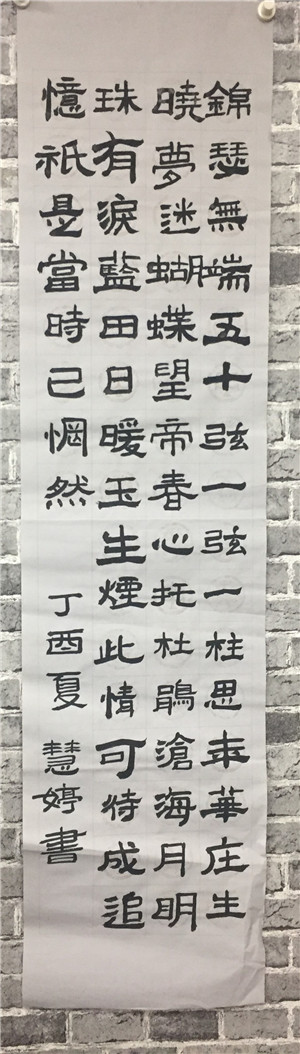 錦瑟無端五十弦一弦一柱思年華庄生
曉夢迷蝴蝶望帝春心托杜鵑滄海月明
珠有淚藍田日暖玉生煙此情可待成追
憶祇是當時已惘然
丁酉夏 慧婷書